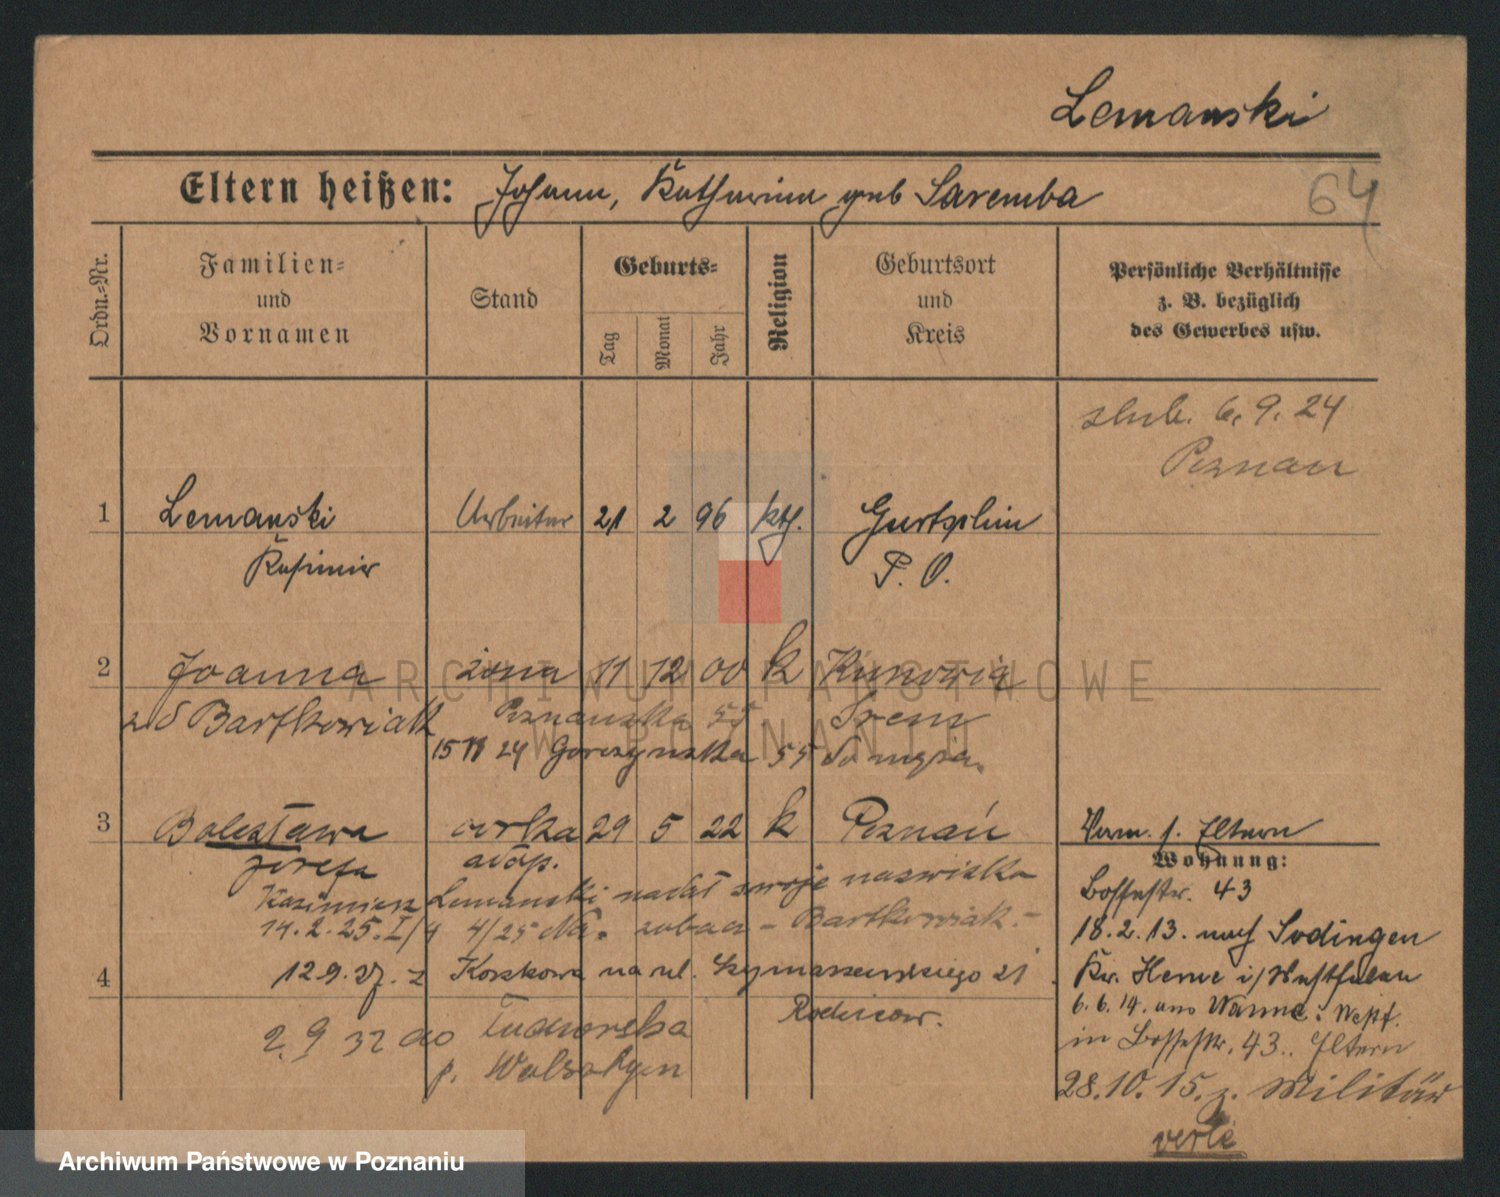 Lemanski
Eltern heißen: Johann, Katharina geb Saremba
64
Ordn.=Nr.
Familien=
und
Vornamen
Stand
Geburts=
Tag
Monat
Jahr
Religion
Geburtsort
und
Kreis
Persönliche Verhältnisse
z. B. bezüglich
des Gewerbes usw.
ślub. 6. 9. 24
Poznań
1 Lemanski Arbeiter 21 2 96 kth. Gurtschin
Kasimir P. O.
2 Joanna żona 11 12 00 k Kunowia
z d Bartkowiak Poznańska 55 Śrem
15 11 24 Gorczyńska 55
3 Bolesława córka 29 5 22 k Poznań
Józefa adop.
Kazimierz Lemanski nadał swoje nazwisko
14. 2. 25. I/4 4/25 zobacz - Bartkowiak. -
4 12 9. 27. z Koszkowa na ul. Szymanowskiego 21
Rodziców.
2. 9 32 do
p.
Verm. s. Eltern
Wohnung:
Bosestr. 43
18. 2. 13. nach Sodingen
Kr. Herne i/Westfalen
6. 6. 14. aus Wanne. Westf.
in Bosestr. 43. Eltern
28. 10. 15. z. Militär
verlé
ARCHIWUM PAŃSTWOWE
W POZNANIU
Archiwum Państwowe w Poznaniu